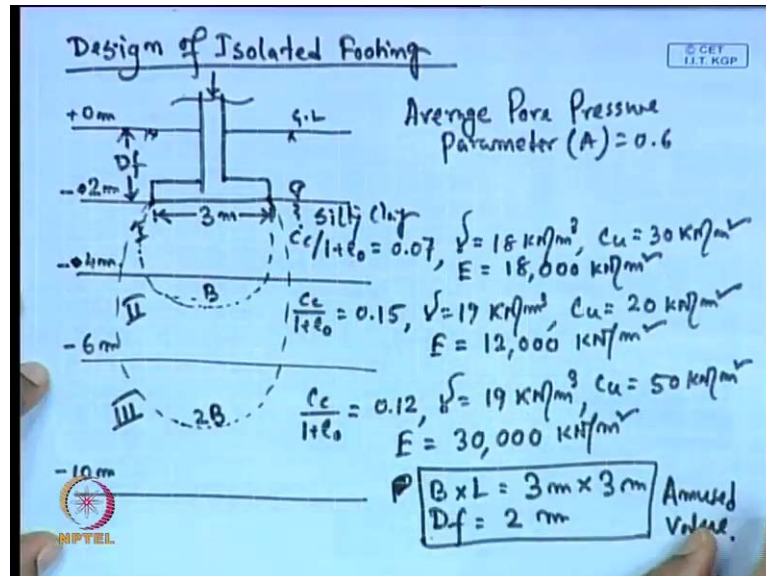 Design of Isolated Footing
© CET
I.I.T. KGP
+0m
G.L
Average Pore Pressure
Parameter (A) = 0.6
Df
-02m
3m
silty clay
Cc/1+e0 = 0.07, γ = 18 kN/m³, Cu = 30 kN/m²
E = 18,000 kN/m²
-04m
B
II
Cc/1+e0 = 0.15, γ = 19 kN/m³, Cu = 20 kN/m²
E = 12,000 kN/m²
-6m
III
2B
Cc/1+e0 = 0.12, γ = 19 kN/m³, Cu = 50 kN/m²
E = 30,000 kN/m²
-10m
B x L = 3m x 3m
Df = 2 m
Assumed
Value.
NPTEL